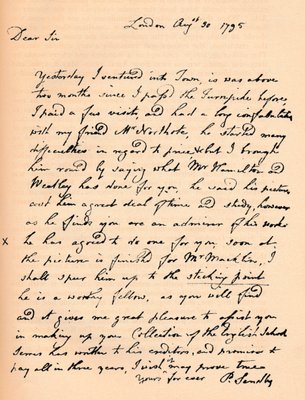 London Augst 30 1795
Dear Sir
Yesterday I ventured into Town, is was above
two months since I pass'd the Turnpike before,
I paid a few visits, and had a long confabulation
with my friend Mr Northcote, he started many
difficulties in regard to price but I brought
him round by saying what Mr Hamilton and
Weatley has done for you, he said his pictures
cost him a great deal of time and study, however
as he finds you are an admirer of his works
x he has agreed to do one for you, soon as
the picture is finished for Mr Macklin, I
shall spur him up to the sticking point
he is a worthy fellow, as you will find
and it gives me great pleasure to assist you
in making up your Collection of the English School
has written to his creditors, and promises to
pay all in three years, I wish it may prove true
Yours for ever P. Sandby